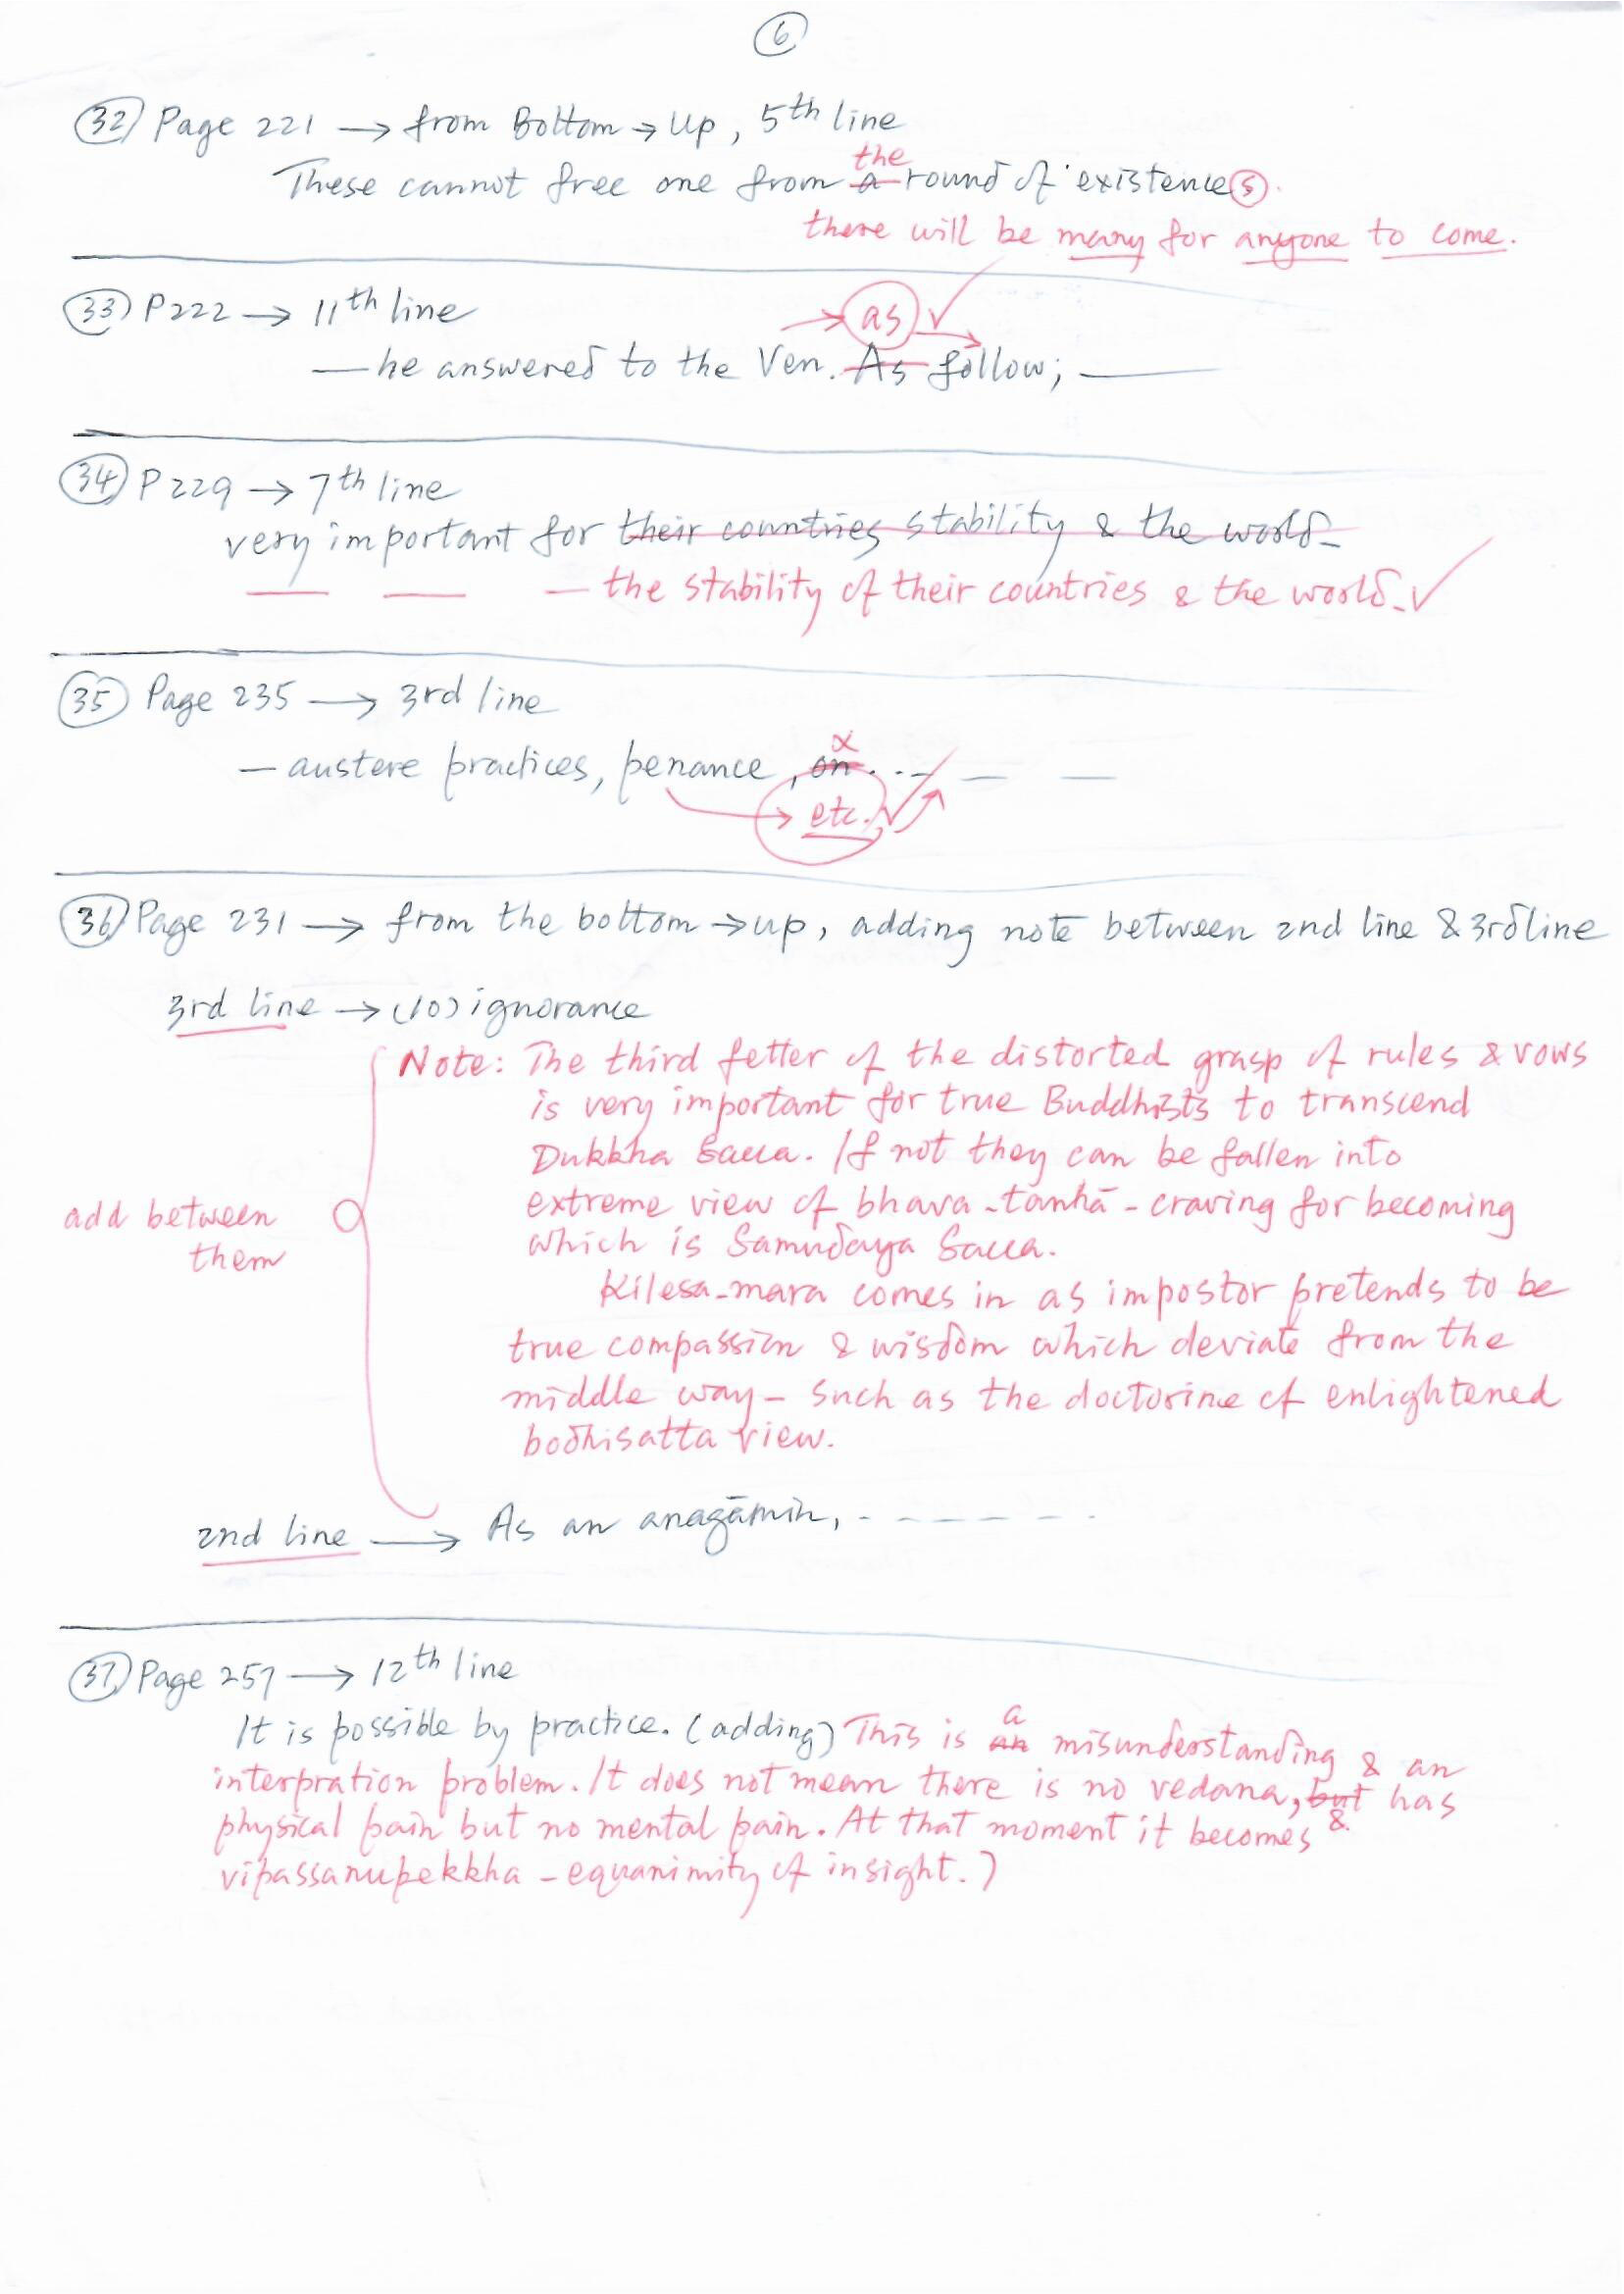 6
32 Page 221 → from Bottom → Up, 5th line
the
These cannot free one from a round of existences.
there will be many for anyone to come.
33 P222 → 11th line
→ as ✓
— he answered to the Ven. As follow; —
34 P229 → 7th line
very important for their countries stability & the world_
— — — the stability of their countries & the world_✓
35 Page 235 → 3rd line
x
— austere practices, penance, on . . . — —
→ etc. ✓
36 Page 231 → from the bottom → up, adding note between 2nd line & 3rd line
3rd line → (10) ignorance
Note: The third fetter of the distorted grasp of rules & vows
is very important for true Buddhists to transcend
Dukkha Sacca. If not they can be fallen into
extreme view of bhava-tanhā - craving for becoming
add between
which is Samudaya Sacca.
them
Kilesa-mara comes in as impostor pretends to be
true compassion & wisdom which deviate from the
middle way - such as the doctorine of enlightened
bodhisatta view.
2nd line → As an anagāmin, - - - - - -
37 Page 257 → 12th line
a
It is possible by practice. (adding) This is an misunderstanding & an
interpration problem. It does not mean there is no vedana, but has
physical pain but no mental pain. At that moment it becomes &
vipassanupekkha - equanimity of insight.)